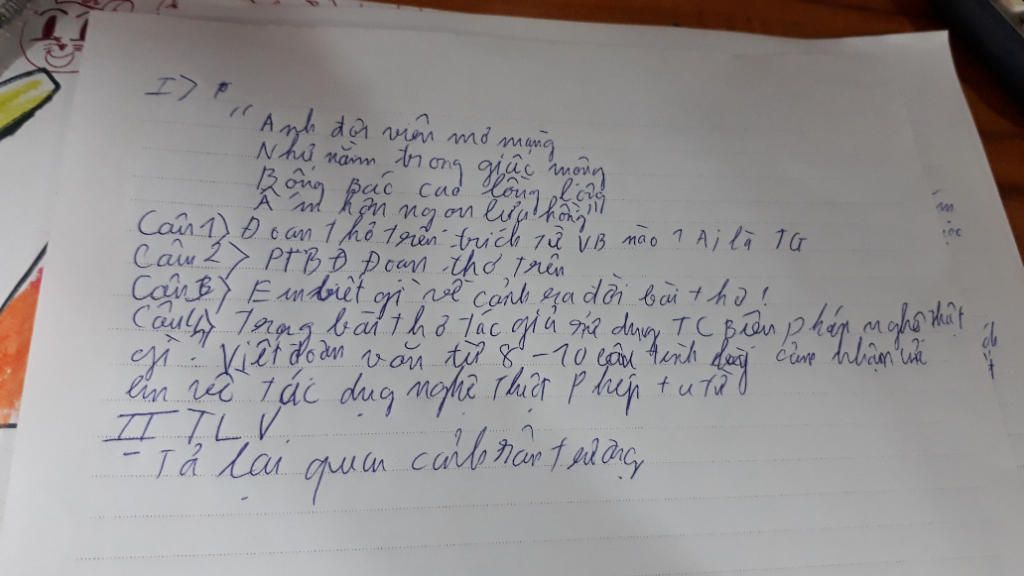 I>
"Anh đội viên mơ màng
Như nằm trong giấc mộng
Bóng Bác cao lồng lộng
Ấm hơn ngọn lửa hồng"
Câu 1> Đoạn thơ trên trích từ VB nào? Ai là TG
Câu 2> PTBĐ Đoạn thơ trên
Câu 3> Em biết gì về cảnh ra đời bài thơ!
Câu 4> Trong bài thơ tác giả sử dụng TC biện pháp nghệ thật
gì. Viết đoạn văn từ 8-10 câu trình cảm nhận của
em về tác dụg nghệ thuật phép tu từ
II TLV
- Tả lại quan cảnh sân trường